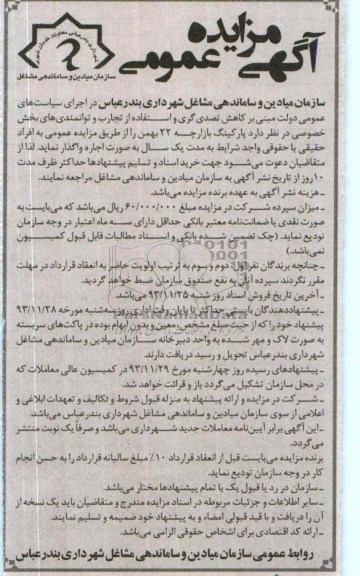 آگهی مزایده عمومی
سازمان میادین و ساماندهی مشاغل
سازمان میادین و ساماندهی مشاغل شهرداری بندرعباس در اجرای سیاست‌های
عمومی دولت مبنی بر کاهش تصدی گری و استفاده از تجارب و توانمندی‌های بخش
خصوصی در نظر دارد پارکینگ بازارچه ۲۲ بهمن را از طریق مزایده عمومی به افراد
حقیقی یا حقوقی واجد شرایط به مدت یک سال به صورت اجاره واگذار نماید. لذا از
متقاضیان دعوت می‌شود جهت خرید اسناد و تسلیم پیشنهادها حداکثر ظرف مدت
۱۰ روز از تاریخ نشر آگهی به سازمان میادین و ساماندهی مشاغل مراجعه نمایند.
- هزینه نشر آگهی به عهده برنده مزایده می‌باشد.
- میزان سپرده شرکت در مزایده مبلغ ۶۰/۰۰۰/۰۰۰ ریال می‌باشد که می‌بایست به
صورت نقدی یا ضمانت‌نامه معتبر بانکی حداقل دارای سه ماه اعتبار در وجه سازمان
تودیع نماید. (چک تضمین شده بانکی و اسناد مطالبات قابل قبول کمیسیون
نمی‌باشد.)
- چنانچه برندگان نفر اول، دوم و سوم به ترتیب اولویت حاضر به انعقاد قرارداد در مهلت
مقرر نگردند سپرده آنان به نفع صندوق سازمان ضبط خواهد گردید.
- آخرین تاریخ فروش اسناد روز شنبه ۹۳/۱۱/۲۵ می‌باشد.
- پیشنهاددهندگان بایستی حداکثر تا پایان وقت اداری روز سه‌شنبه مورخه ۹۳/۱۱/۲۸
پیشنهاد خود را که از حیث مبلغ مشخص، معین و بدون ابهام بوده در پاکت‌های سربسته
به صورت لاک و مهر شده به واحد دبیرخانه سازمان میادین و ساماندهی مشاغل
شهرداری بندرعباس تحویل و رسید دریافت دارند.
- پیشنهادهای رسیده روز چهارشنبه مورخ ۹۳/۱۱/۲۹ در کمیسیون عالی معاملات که
در محل سازمان تشکیل می‌گردد باز و قرائت خواهد شد.
- شرکت در مزایده و ارائه پیشنهاد به منزله قبول شروط و تکالیف و تعهدات ابلاغی و
اعلامی از سوی سازمان میادین و ساماندهی مشاغل شهرداری بندرعباس می‌باشد.
- این آگهی برابر آیین‌نامه معاملات جدید شهرداری می‌باشد و صرفاً یک نوبت منتشر
می‌گردد.
برنده مزایده می‌بایست قبل از انعقاد قرارداد ۱۰٪ مبلغ سالیانه قرارداد را به حسن انجام
کار در وجه سازمان تودیع نماید.
- سازمان در رد یا قبول یک یا تمام پیشنهادها مختار می‌باشد.
- سایر اطلاعات و جزئیات مربوطه در اسناد مزایده مندرج و متقاضیان باید یک نسخه از
آن را دریافت و با قید قبولی امضاء و به پیشنهاد خود ضمیمه و تسلیم نمایند.
- ارائه کد اقتصادی برای اشخاص حقوقی الزامی می‌باشد.
روابط عمومی سازمان میادین و ساماندهی مشاغل شهرداری بندرعباس